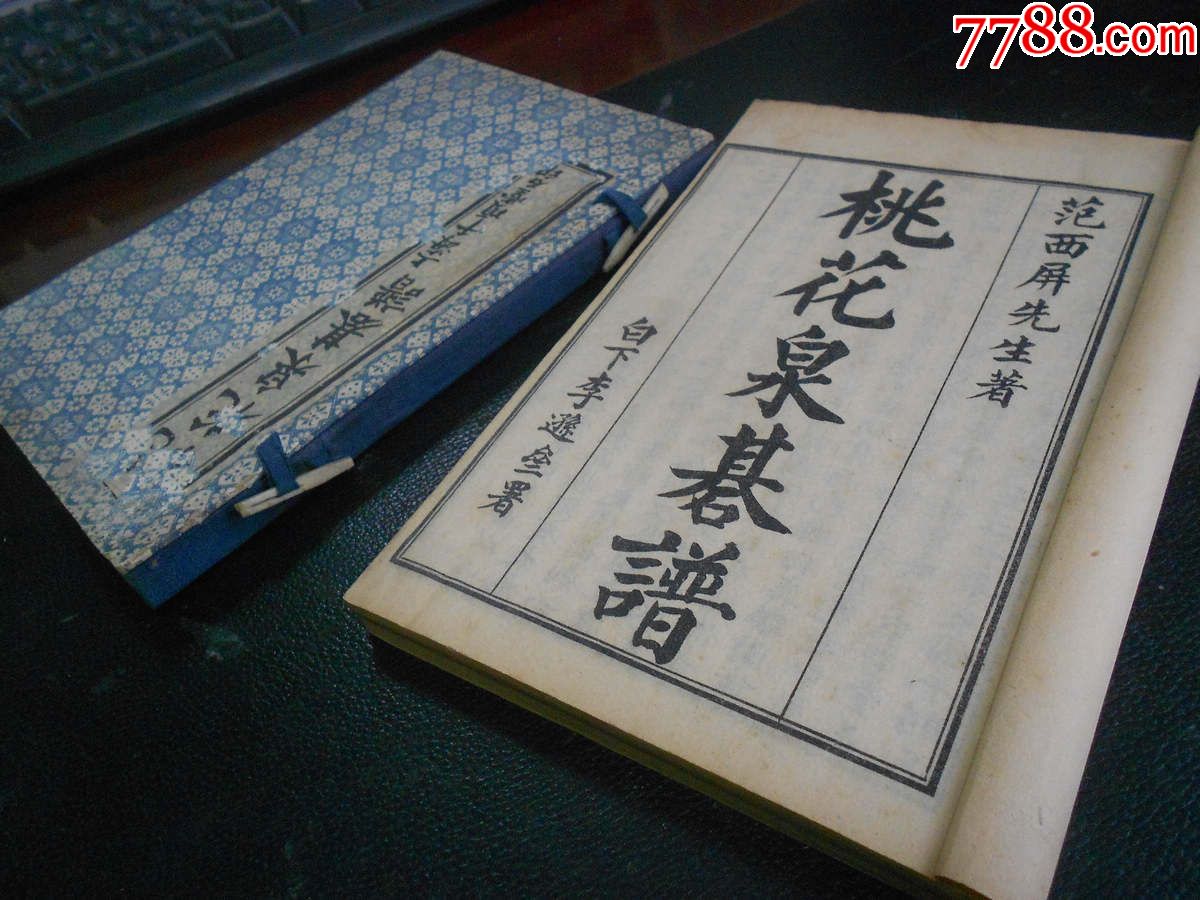 7788.com
范西屏先生著
桃花泉棊譜
白下李遜盦署
泉棊譜